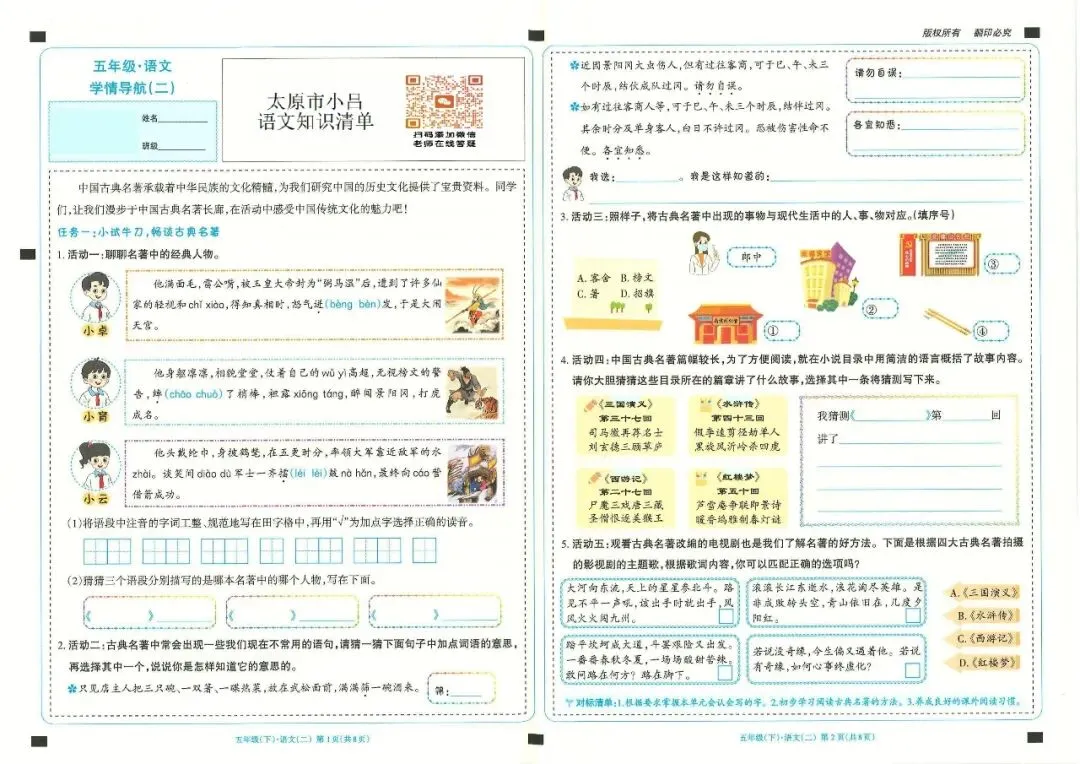 版权所有 翻印必究
五年级·语文
学情导航(二)
姓名
班级
太原市小吕
语文知识清单
扫码添加微信
老师在线答疑
中国古典名著承载着中华民族的文化精髓,为我们研究中国的历史文化提供了宝贵资料。同学
们,让我们漫步于中国古典名著长廊,在活动中感受中国传统文化的魅力吧!
任务一:小试牛刀,畅谈古典名著
1.活动一:聊聊名著中的经典人物。
小卓
他满面毛,雷公嘴,被玉皇大帝封为“弼马温”后,遭到了许多仙
家的轻视和chǐ xiào,得知真相时,怒气迸(bèng bèn)发,于是大闹
天宫。
小育
他身躯凛凛,相貌堂堂,仗着自己的wǔ yì高超,无视榜文的警
告,绰(chāo chuò)了梢棒,袒露xiōng táng,醉闯景阳冈,打虎
成名。
小云
他头戴纶巾,身披鹤氅,在五更时分,率领大军靠近敌军的水
zhài。谈笑间diào dù军士一齐擂(léi lèi)鼓nà hǎn,最终向cáo营
借箭成功。
(1)将语段中注音的字词工整、规范地写在田字格中,再用“√”为加点字选择正确的读音。
(2)猜猜三个语段分别描写的是哪本名著中的哪个人物,写在下面。
《 》 《 》 《 》
2.活动二:古典名著中常会出现一些我们现在不常用的语句,请猜一猜下面句子中加点词语的意思,
再选择其中一个,说说你是怎样知道它的意思的。
只见店主人把三只碗、一双箸、一碟热菜,放在武松面前,满满筛一碗酒来。
筛:
五年级(下)·语文(二) 第1页(共8页)
近因景阳冈大虫伤人,但有过往客商,可于巳、午、未三
个时辰,结伙成队过冈。请勿自误。
请勿自误:
如有过往客商人等,可于巳、午、未三个时辰,结伴过冈。
其余时分及单身客人,白日不许过冈。恐被伤害性命不
便。各宜知悉。
各宜知悉:
我选: 。我是这样知道的:
3.活动三:照样子,将古典名著中出现的事物与现代生活中的人、事、物对应。(填序号)
A.客舍 B.榜文
C.箸 D.招旗
郎中
①
②
③
④
4.活动四:中国古典名著篇幅较长,为了方便阅读,就在小说目录中用简洁的语言概括了故事内容。
请你大胆猜猜这些目录所在的篇章讲了什么故事,选择其中一条将猜测写下来。
《三国演义》
第三十七回
司马徽再荐名士
刘玄德三顾草庐
《水浒传》
第四十三回
假李逵剪径劫单人
黑旋风沂岭杀四虎
《西游记》
第二十七回
尸魔三戏唐三藏
圣僧恨逐美猴王
《红楼梦》
第五十回
芦雪庵争联即景诗
暖香坞雅制春灯谜
我猜测《 》第 回
讲了
5.活动五:观看古典名著改编的电视剧也是我们了解名著的好方法。下面是根据四大古典名著拍摄
的影视剧的主题歌,根据歌词内容,你可以匹配正确的选项吗?
大河向东流,天上的星星参北斗。路
见不平一声吼,该出手时就出手,风
风火火闯九州。
滚滚长江东逝水,浪花淘尽英雄。是
非成败转头空,青山依旧在,几度夕
阳红。
踏平坎坷成大道,斗罢艰险又出发。
一番番春秋冬夏,一场场酸甜苦辣。
敢问路在何方?路在脚下。
若说没奇缘,今生偏又遇着他。若说
有奇缘,如何心事终虚化?
A.《三国演义》
B.《水浒传》
C.《西游记》
D.《红楼梦》
对标清单:1.根据要求掌握本单元会认会写的字。2.初步学习阅读古典名著的方法。3.养成良好的课外阅读习惯。
五年级(下)·语文(二) 第2页(共8页)